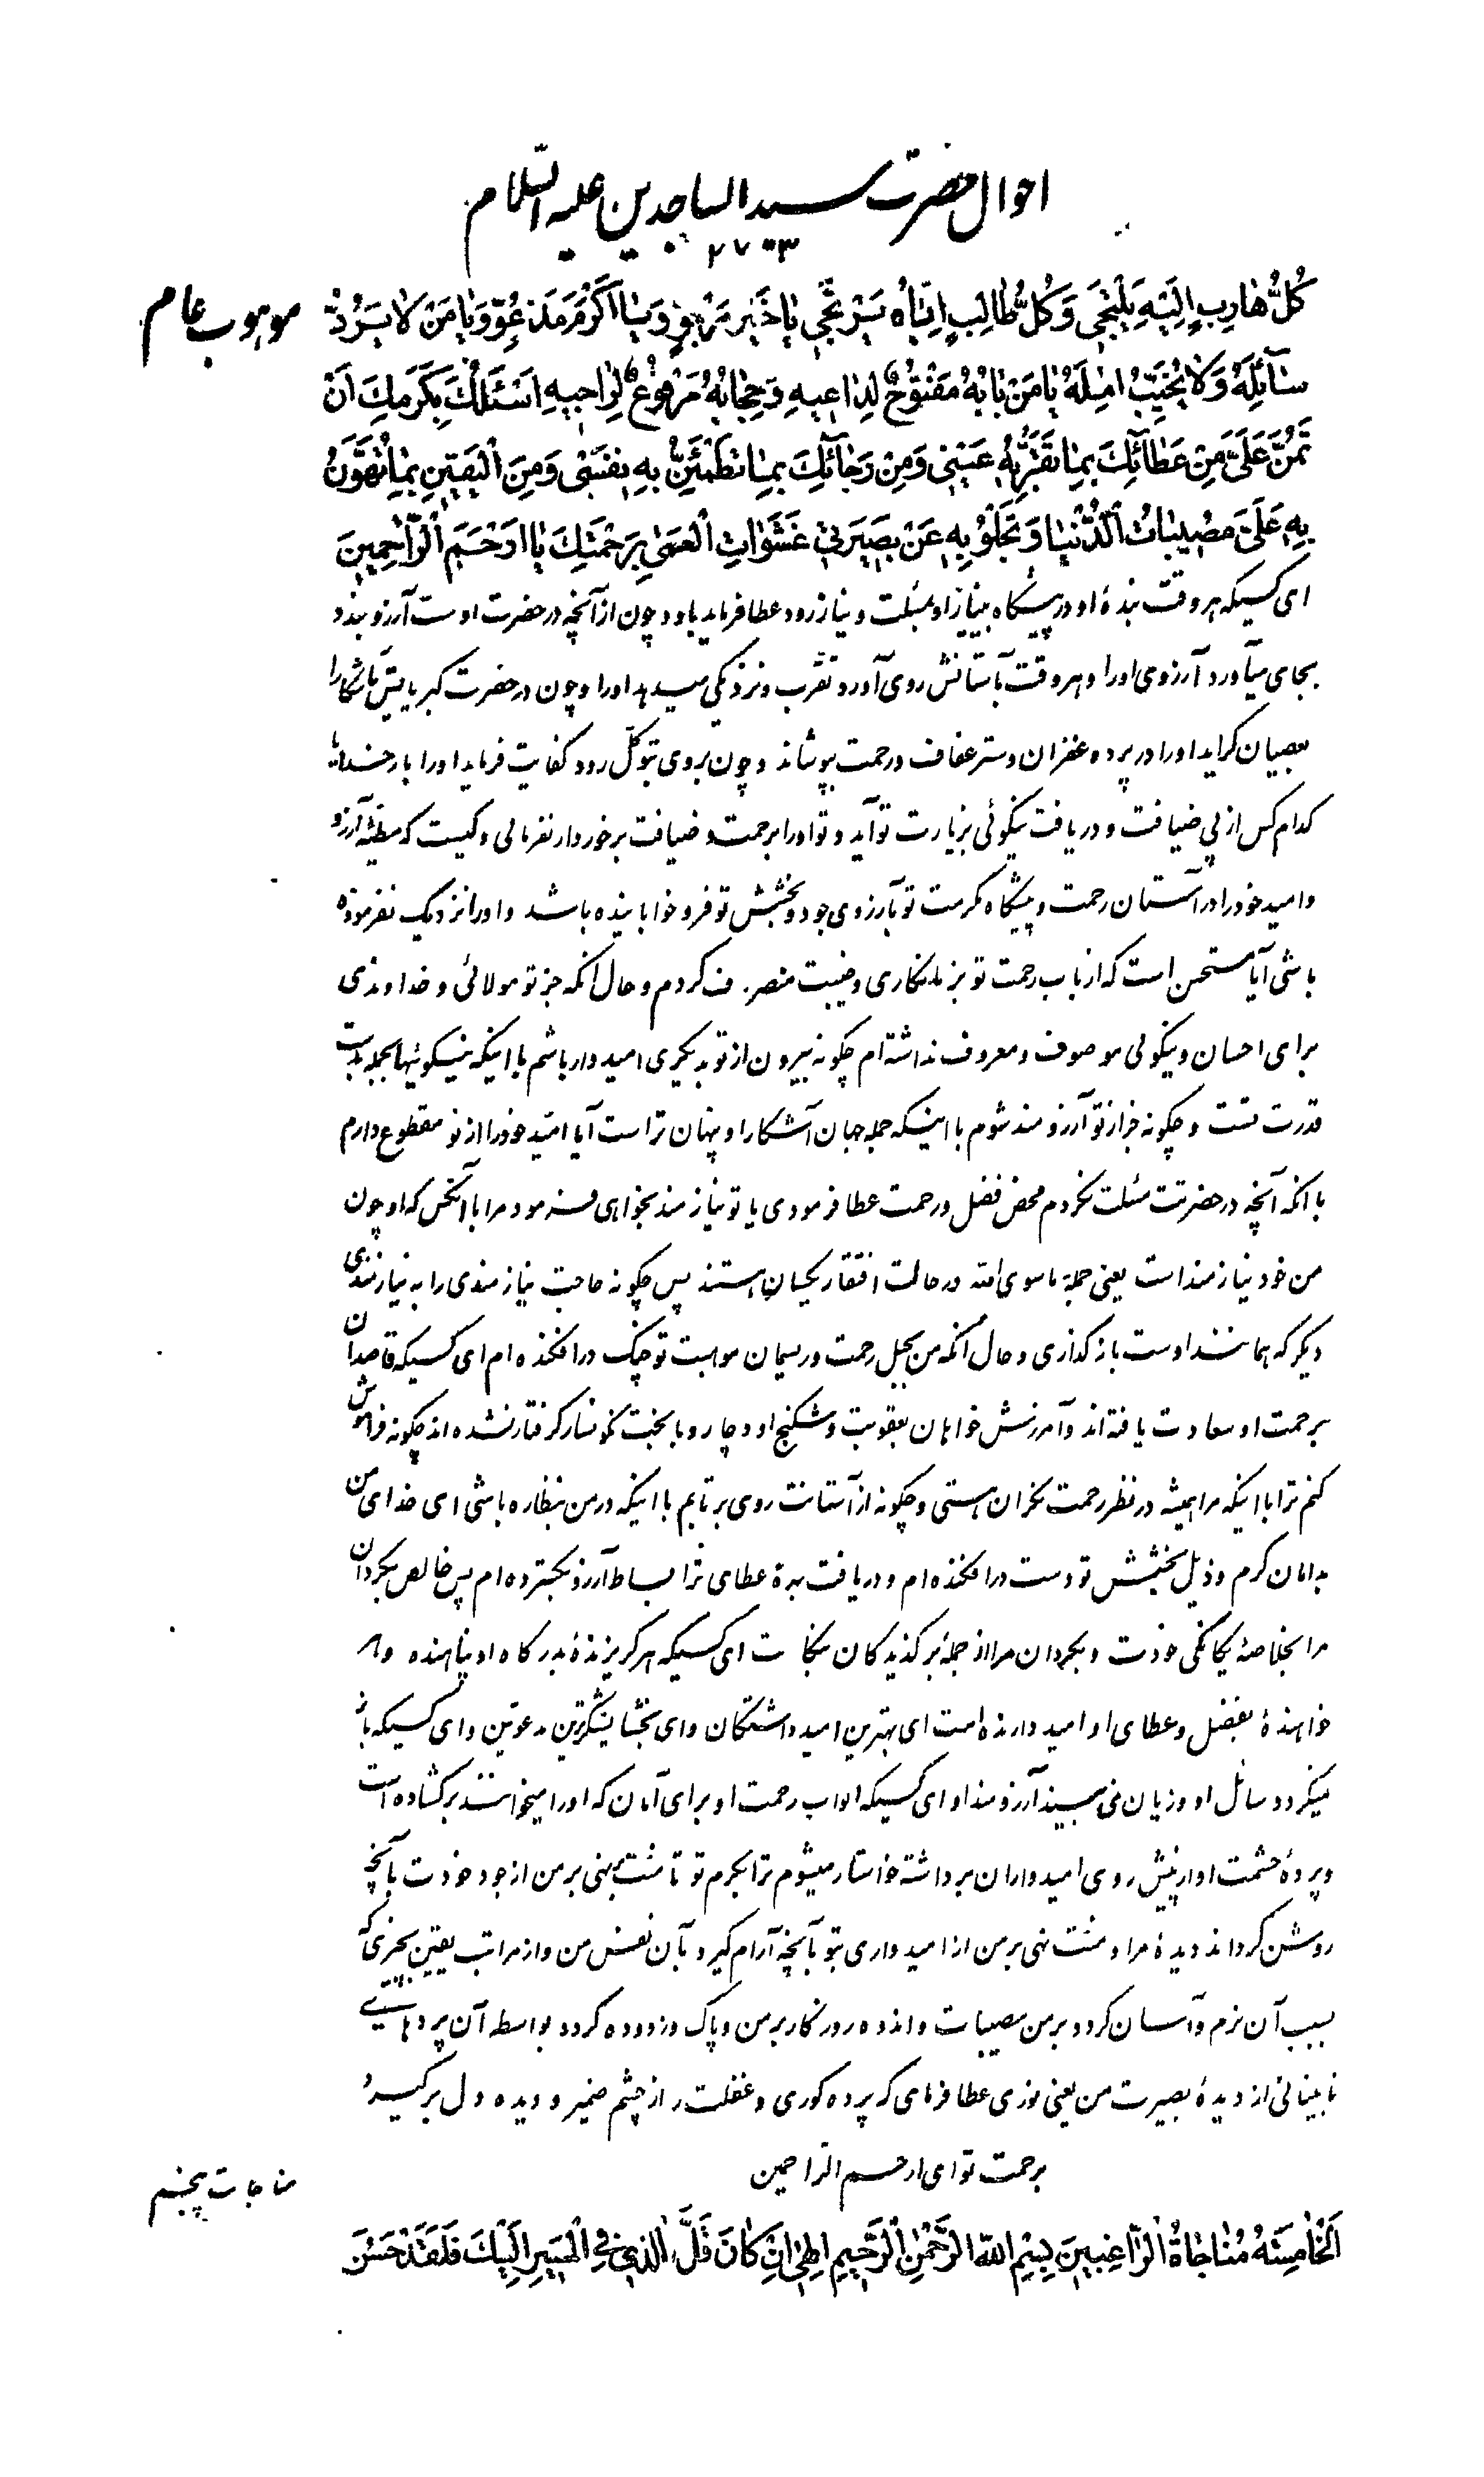 احوال حضرت سید الساجدین علیه السّلام
۲۷۰۳
موهوب عام
كُلُّ هَارِبٍ اِلَيْهِ يَلْتَجِي وَكُلُّ طَالِبٍ اِيَّاهُ يَرْتَجِي يَا خَيْرَ مَرْجُوٍّ وَيَا اَكْرَمَ مَدْعُوٍّ وَيَا مَنْ لَا يَرُدُّ
سَآئِلَهُ وَلَا يُخَيِّبُ امِلَهُ يَا مَنْ بَابُهُ مَفْتُوحٌ لِدَاعِيهِ وَحِجَابُهُ مَرْفُوعٌ لِرَاجِيهِ اَسْئَلُكَ بِكَرَمِكَ اَنْ
تَمُنَّ عَلَيَّ مِنْ عَطَائِكَ بِمَا تَقَرُّ بِهِ عَيْنِي وَمِنْ رَجَآئِكَ بِمَا تَطْمَئِنُّ بِهِ نَفْسِي وَمِنَ الْيَقِينِ بِمَا تُهَوِّنُ
بِهِ عَلَيَّ مُصِيبَاتُ الدُّنْيَا وَتَجْلُوْ بِهِ عَنْ بَصِيرَتِي غَشَوَاتِ الْعَمَى بِرَحْمَتِكَ يَا اَرْحَمَ الرَّاحِمِينَ
ای کسیکه هر وقت بندهٔ او در پیشگاه بی‌نیاز او بمسئلت و نیاز رود عطا فرماید باو و چون از آنچه در حضرت اوست آرزو بندد
بجای میآورد آرزوی او را و هر وقت بآستانش روی آورد تقرب و نزدیکی میدهد او را و چون در حضرت کبریایش آشکارا
بعصیان گراید او را در پرده غفران و ستر عفاف و رحمت بپوشاند و چون بروی توکّل رود کفایت فرماید او را بار خدایا
کدام کس از پی ضیافت و دریافت نیکوئی بزیارت تو آید و تو او را برحمت و ضیافت برخوردار نفرمائی و کیست که مطیّهٔ آرزو
و امید خود را در آستان رحمت و پیشگاه مکرمت تو بآرزوی جود و بخشش تو فرو خوابانیده باشد و او را نزدیک نفرموده
باشی آیا مستحسن است که از باب رحمت تو بزیانکاری و خیبت منصرف کردم و حال آنکه جز تو مولائی و خداوندی
برای احسان و نیکوئی موصوف و معروف نداشته‌ام چگونه بیرون از تو بدیگری امیدوار باشم با اینکه نیکوئیها بجمله بدست
قدرت تست و چگونه جز از تو آرزومند شوم با اینکه جمله جهان آشکارا و پنهان تراست آیا امّید خود را از تو مقطوع دارم
با انکه آنچه در حضرتت مسئلت نکردم محض فضل و رحمت عطا فرمودی یا تو نیازمند بخواهی فرمود مرا با آنکس که او چون
من خود نیازمند است یعنی جملهٔ ماسوی الله در حالت افتقار یکسان هستند پس چگونه حاجت نیازمندی را به نیازمندی
دیگر که همانند اوست باز گذاری و حال آنکه من بحبل رحمت و ریسمان موهبت تو چنگ درافکنده‌ام ای کسیکه قاصدان
برحمت او سعادت یافته‌اند و آمرزش خواهان بعقوبت و شکنج او دچار و با بخت نگونسار گرفتار نشده‌اند چگونه فراموش
کنم ترا با اینکه مرا همیشه در نظر رحمت نگران هستی و چگونه از آستانت روی برتابم با اینکه در من بنظاره باشی ای خدای من
بدامان کرم و ذیل بخشش تو دست درافکنده‌ام و دریافت بهرهٔ عطای ترا بساط آرزو بگسترده‌ام پس خالص بگردان
مرا بخلاصهٔ یگانگی خودت و بگردان مرا از جملهٔ برگزیدگان ای کسیکه هر گریزندهٔ بدرگاه او پناهنده و هر
خواهندهٔ بفضل و عطای او امید دارنده است ای بهترین امید داشتگان و ای بخشایشگرترین مدعوین و ای کسیکه باز
نمیگردد سائل او و زیان نمی‌بیند آرزومند او ای کسیکه ابواب رحمت او برای آنان که او را میخوانند برگشاده است
و پردهٔ حشمت او از پیش روی امیدواران برداشته خواستار میشوم ترا بکرم تو تا منّت نهی بر من از جود خودت بآنچه
روشن گرداند دیدهٔ مرا و منّت نهی بر من از امیدواری بتو بآنچه آرام گیرد بآن نفس من و از مراتب یقین بچیزی که
بسبب آن نرم و آسان گردد بر من مصیبات و اندوه روزگار بر من و پاک و زدوده گردد بواسطه آن پرده‌های
نابینائی از دیدهٔ بصیرت من یعنی نوری عطا فرمای که پرده کوری و غفلت را از چشم ضمیر و دیده دل برگیرد
برحمت تو ای ارحم الراحمین
مناجات پنجم
اَلْخَامِسَةُ مُنَاجَاةُ الرَّاغِبِينَ بِسْمِ اللّهِ الرَّحْمٰنِ الرَّحِيمِ اِلٰهِي اِنْ كَانَ قَلَّ زَادِي فِي الْمَسِيرِ اِلَيْكَ فَلَقَدْ حَسُنَ